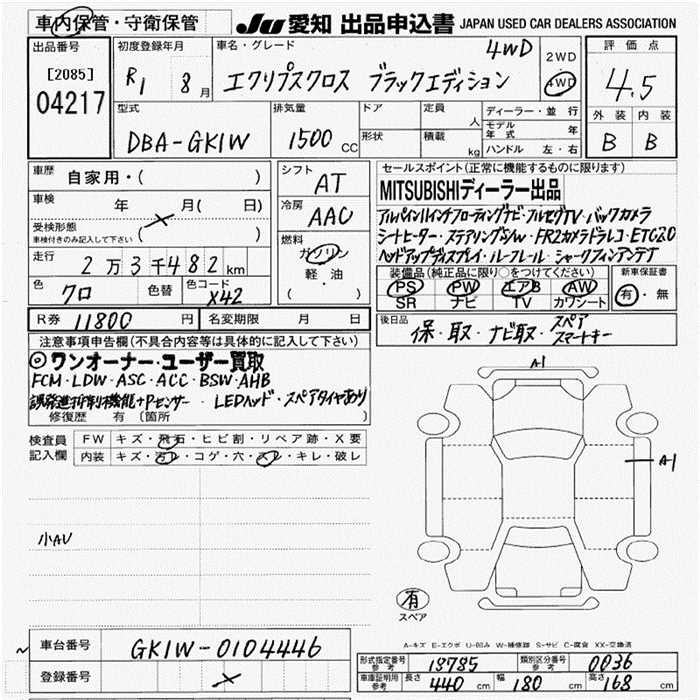 車内保管・守衛保管 JU 愛知 出品申込書 JAPAN USED CAR DEALERS ASSOCIATION
出品番号
[2085]
04217
初度登録年月
R1 8月
車名・グレード
4WD
エクリプスクロス ブラックエディション
2WD
4WD
評価点
4.5
外装 内装
B B
型式
DBA-GK1W
排気量
1500 CC
ドア
形状
定員 人
積載 kg
ディーラー・並行
モデル年式 年
ハンドル 左・右
車歴 自家用・( )
車検 年 月( 日)
受検形態
車検付きのみ記入して下さい ( )
走行 2万3千482km
色 クロ 色替 色コード X42
シフト AT
冷房 AAC
燃料
ガソリン
軽・油
( )
セールスポイント(正常に機能するものに限ります)
MITSUBISHIディーラー出品
アルパイン11インチフローティングナビ・フルセグTV・バックカメラ
シートヒーター・ステアリングS/W・FR2カメラドラレコ・ETC2.0
ヘッドアップディスプレイ・ルーフレール・シャークフィンアンテナ
装備品(純正品に限り○をつけてください)
PS PW エアB AW
SR ナビ TV カワシート
新車保証書
有・無
R券 11800円 名変期限 月 日
後日品 保・取・ナビ取・スペアスマートキー
注意事項申告欄(不具合内容等は具体的に記入して下さい)
◎ワンオーナー・ユーザー買取
FCM・LDW・ASC・ACC・BSW・AHB
誤発進抑制機能+Pセンサー・LEDヘッド・スペアタイヤあり
修復歴 有 〔箇所 〕
検査員記入欄
FW キズ・飛石・ヒビ割・リペア跡・X要
内装 キズ・汚レ・コゲ・穴・スレ・キレ・破レ
小AU
A1
A1
有
スペア
A-キズ E-エクボ U-凹み W-補修跡 S-サビ C-腐食 XX-交換済
車台番号 GK1W-0104446
登録番号
形式指定番号 参考 18785 類別区分番号 参考 0036
車庫証明用 参考 長さ 440cm 幅 180cm 高さ 168cm